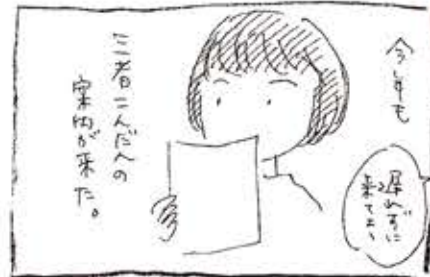 今年も
遅れずに
来てよ〜
三者こんだんの
案内が来た。